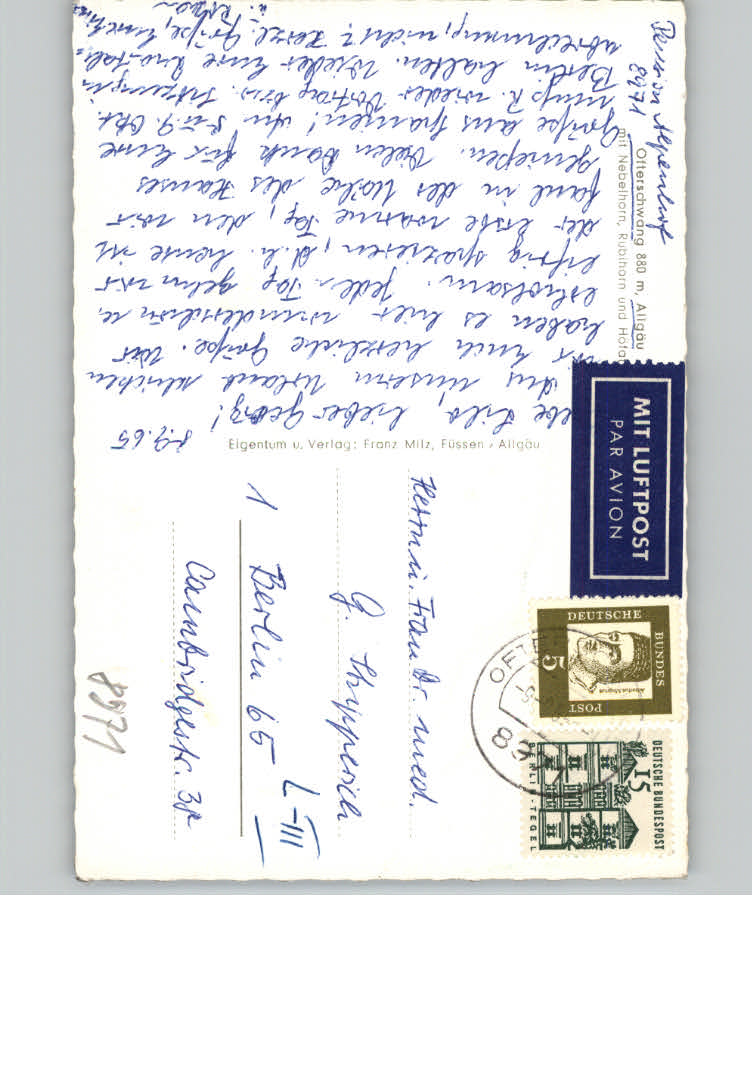 Pension Alpenhof
8971
Ofterschwang 880 m, Allgäu
mit Nebelhorn, Rubihorn und Höfats
8.9.65
Liebe Lilo, lieber Georg!
Aus unserm Urlaub schicken
wir Euch herzliche Grüße. Wir
haben es hier wunderschön u.
erholsam. Jeden Tag gehn wir
eifrig spazieren, d.h. heute ist
der erste warme Tag, den wir
faul in der Nähe des Hauses
genießen. Vielen Dank für Eure
Grüße aus Spanien! Am 8. u. 9. Okt.
muß R. wieder Vortrag bzw. Sitzung in
Berlin halten. Wieder Eure
nicht? Herzl. Grüße, Eure
Eigentum u. Verlag: Franz Milz, Füssen / Allgäu
MIT LUFTPOST
PAR AVION
DEUTSCHE
BUNDES
POST
5
Albertus Magnus
DEUTSCHE BUNDESPOST
15
BERLIN-TEGEL
OFTER
8971
Herrn u. Frau Dr. med.
G. Knipperich
1 Berlin 65
L-III
Cambridgestr. 3a
8971